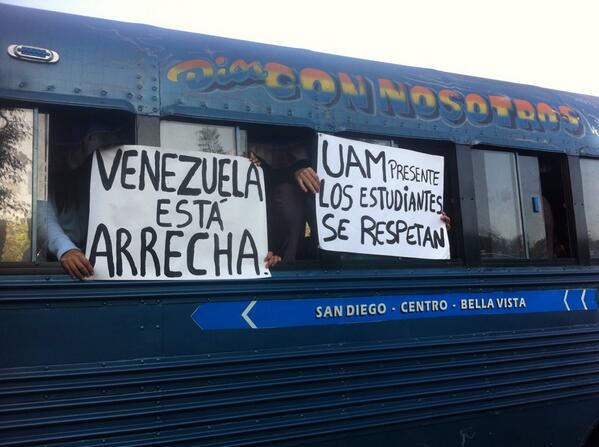 Dios CON NOSOTROS
VENEZUELA
ESTÁ
ARRECHA.
UAM PRESENTE
LOS ESTUDIANTES
SE RESPETAN
SAN DIEGO - CENTRO - BELLA VISTA